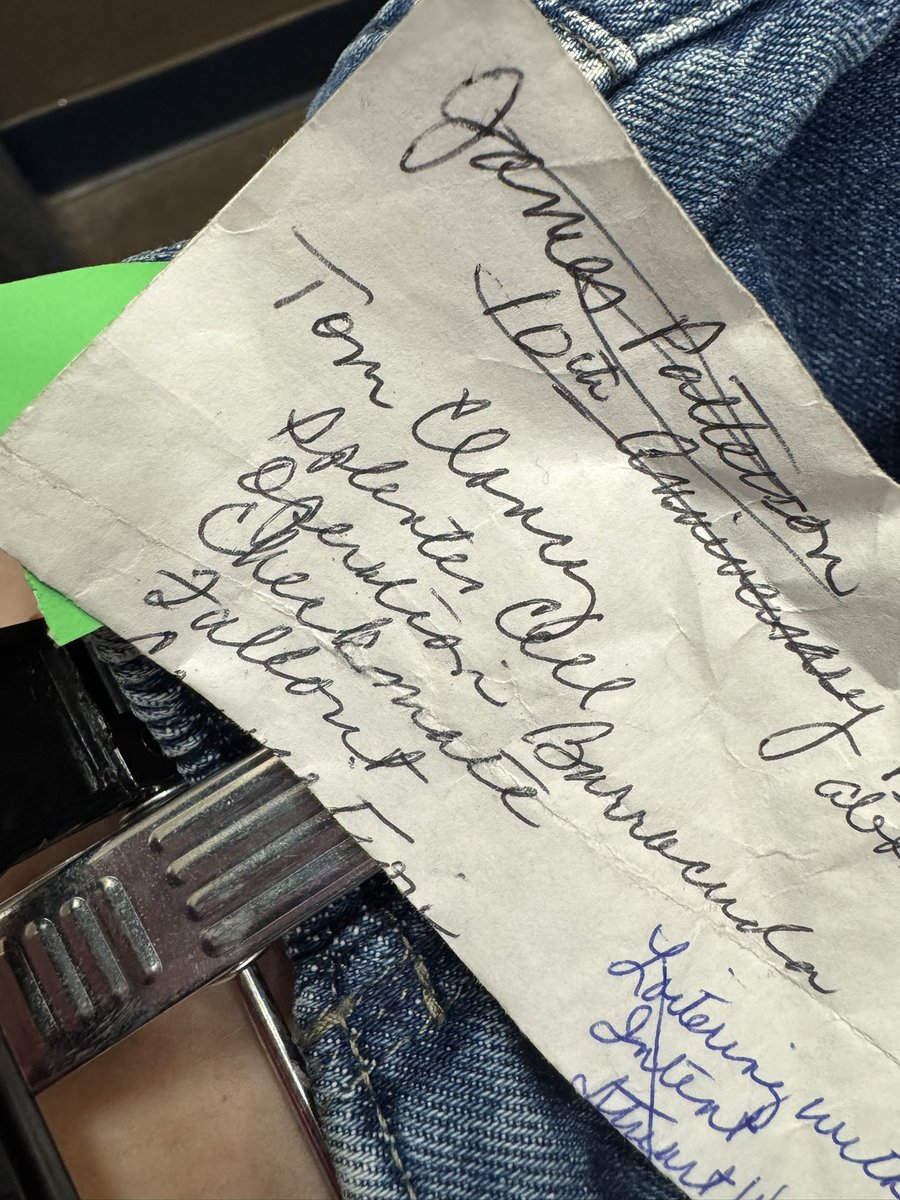 James Patterson
10th Anniversary
Tom Clancy
Splenter Cell Barracuda
Operation
Checkmate
Fallout
Loitering with
Intent
Stuart